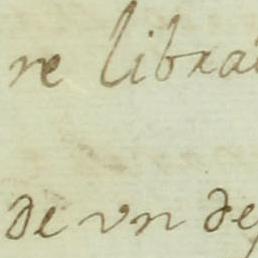 re librai
de vn de